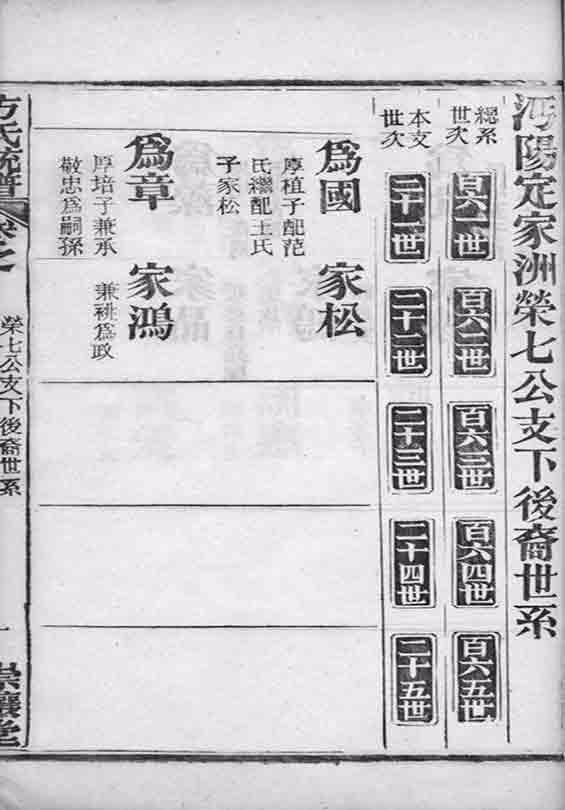 沔陽定家洲榮七公支下後裔世系
總系
世次
百六一世
百六二世
百六三世
百六四世
百六五世
本支
世次
二十一世
二十二世
二十三世
二十四世
二十五世
爲國
厚植子配范
氏繼配王氏
子家松
家松
爲章
厚培子兼承
敬忠爲嗣孫
家鴻
兼祧爲政
方氏統譜
榮七公支下後裔世系
一
崇讓堂